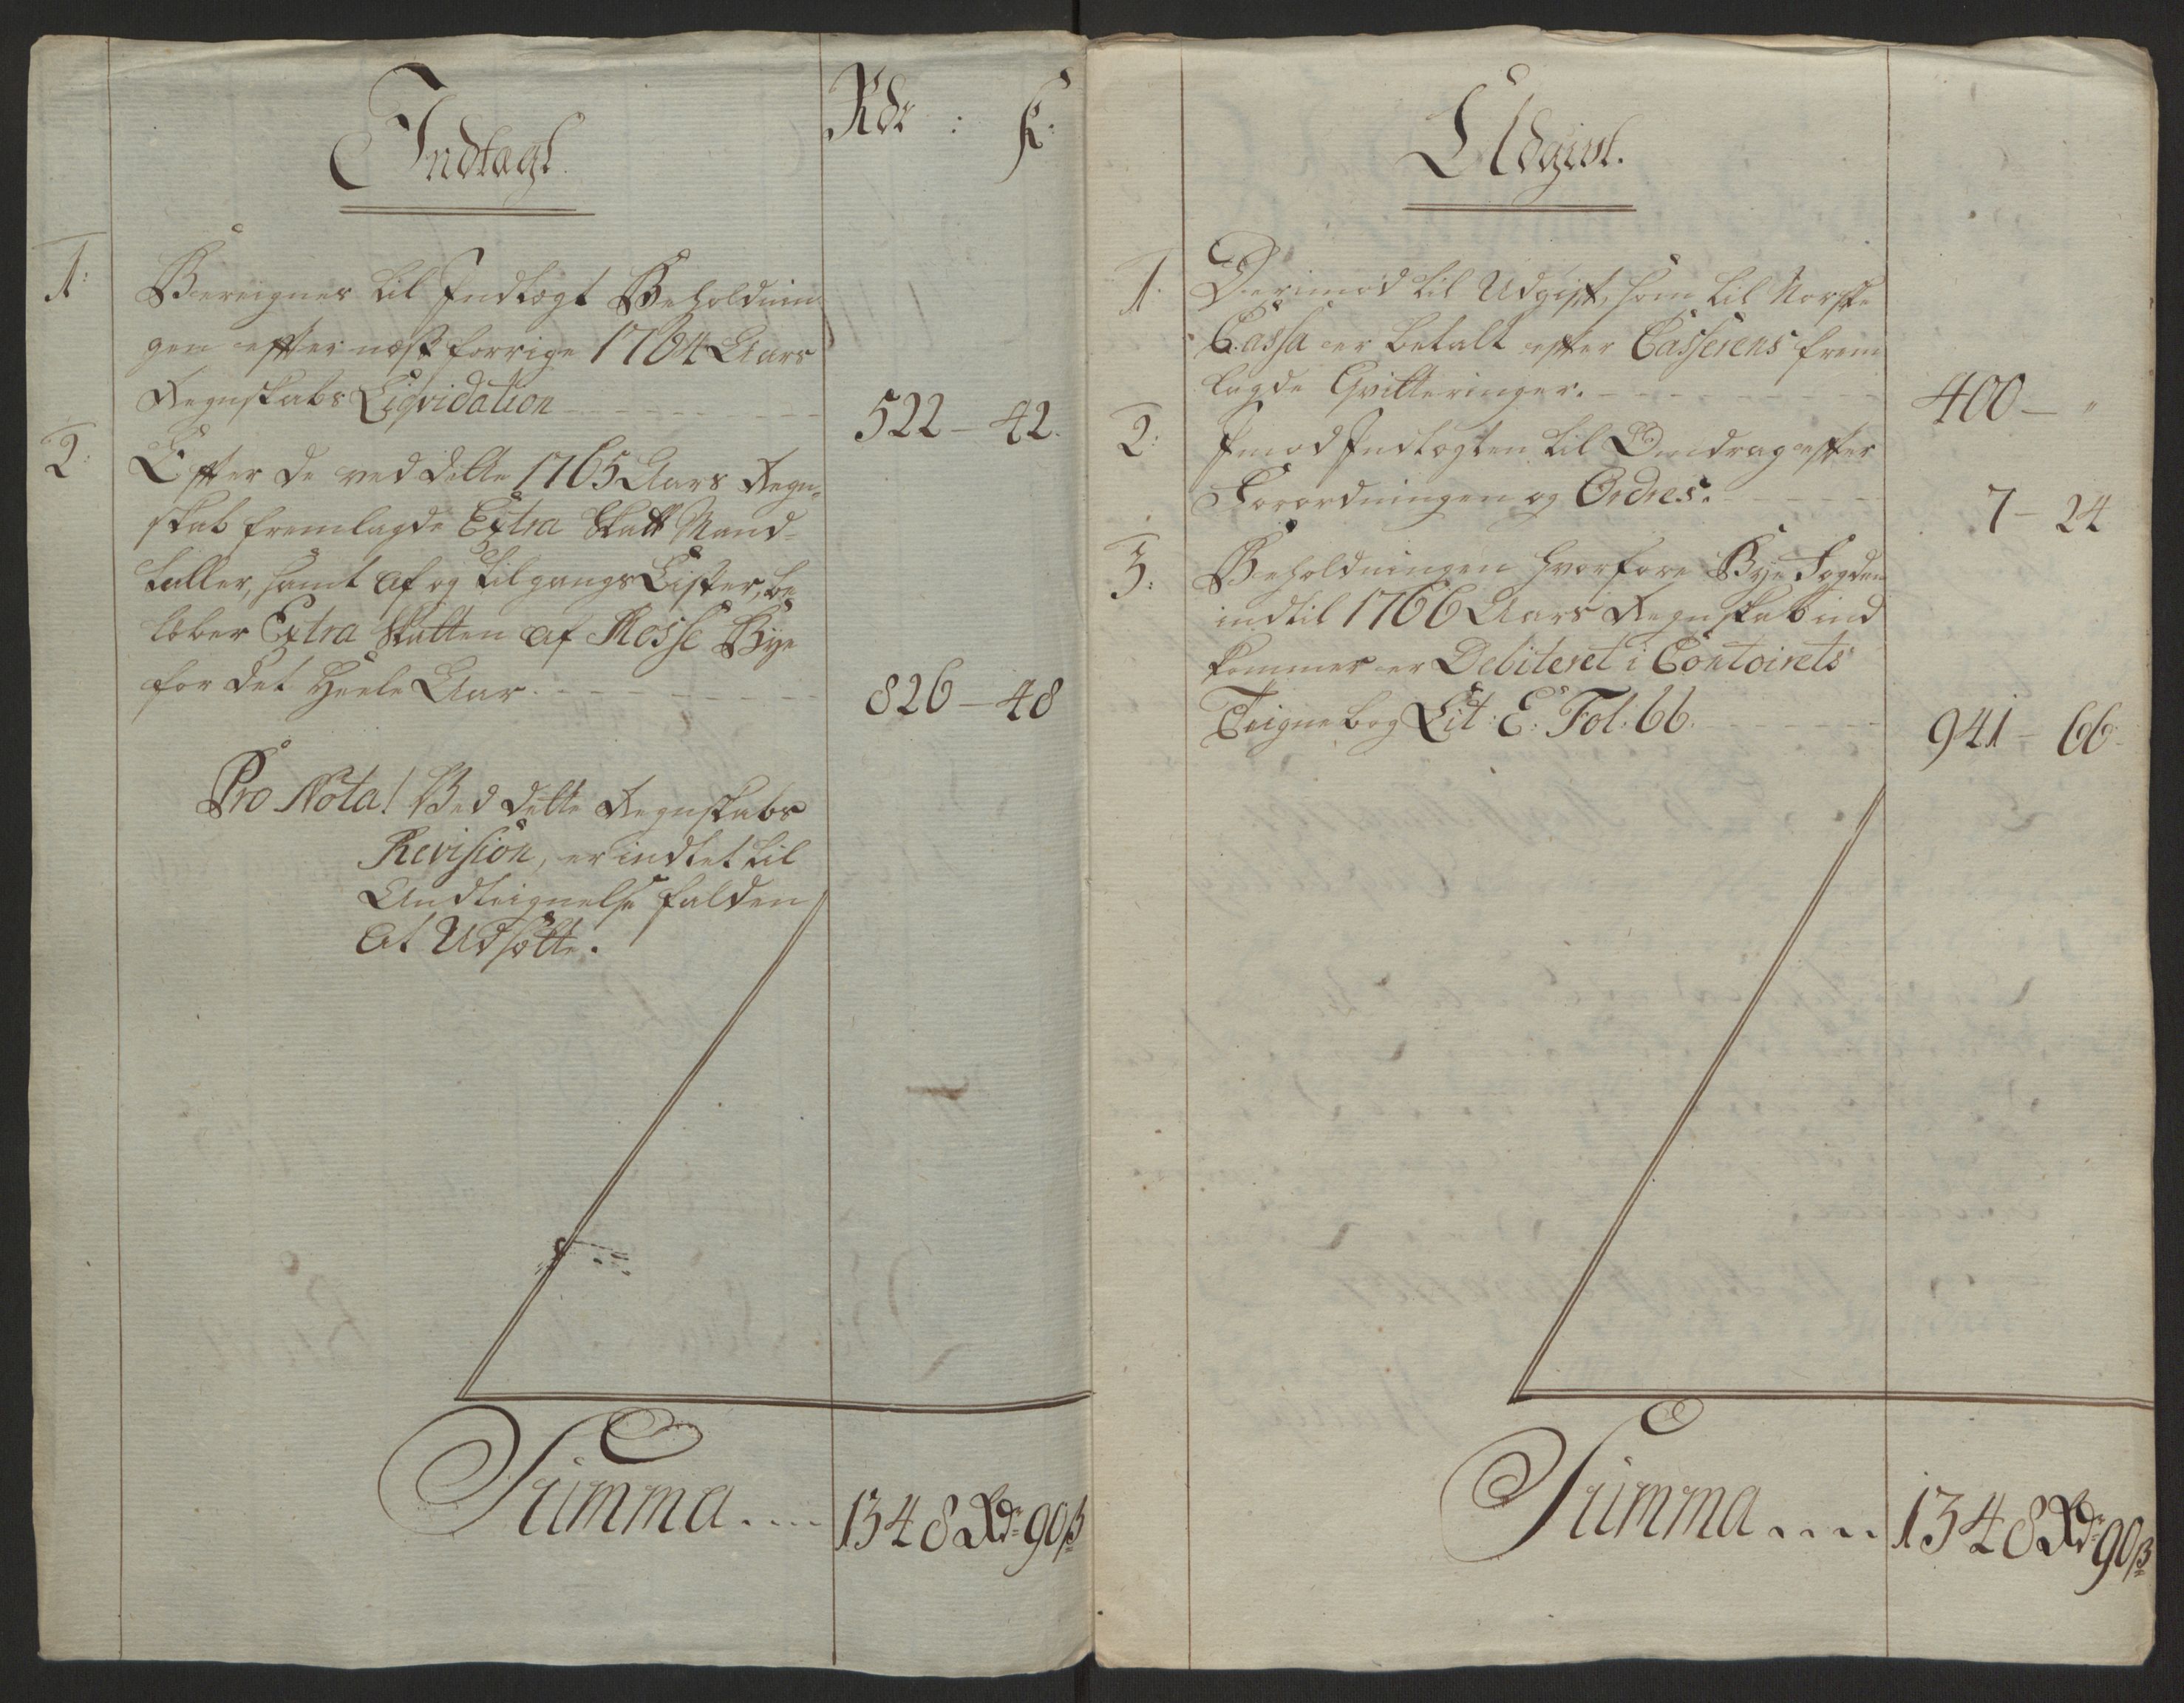 Indtægt.
Rdr : ß:
1:
Bereignes til Indtægt Beholdnin
gen efter næst forrige 1764 Aars
Regnskabs Liqvidation
522 – 42.
2:
Efter de ved dette 1765 Aars Regn-
skab fremlagde Extra Skatt Mand-
taller, samt af og tilgangs Lister, be
løber Extra Skatten af Mosse Bye
for det heele Aar.
826 – 48
Pro Nota! Ved dette Regnskabs
Revision, er indtet til
Andteignelse falden
at Udsætte.
Summa .... 1348 Rdr 90 ß
Udgivt.
1.
Derimod til Udgift, som til Norske
Cassa er betalt efter Casserens frem
lagde Qvitteringer.
400 – "
2:
Imod Indtægten til Omdrag efter
Forordningen og Ordres.
7 – 24
3:
Beholdningen hvorfore Bye Fogden
indtil 1766 Aars Regnskab ind
kommer er Debiteret i Contoirets
Teignebog Lit: E: Fol: 66.
941 – 66.
Summa .... 1348 Rdr 90 ß